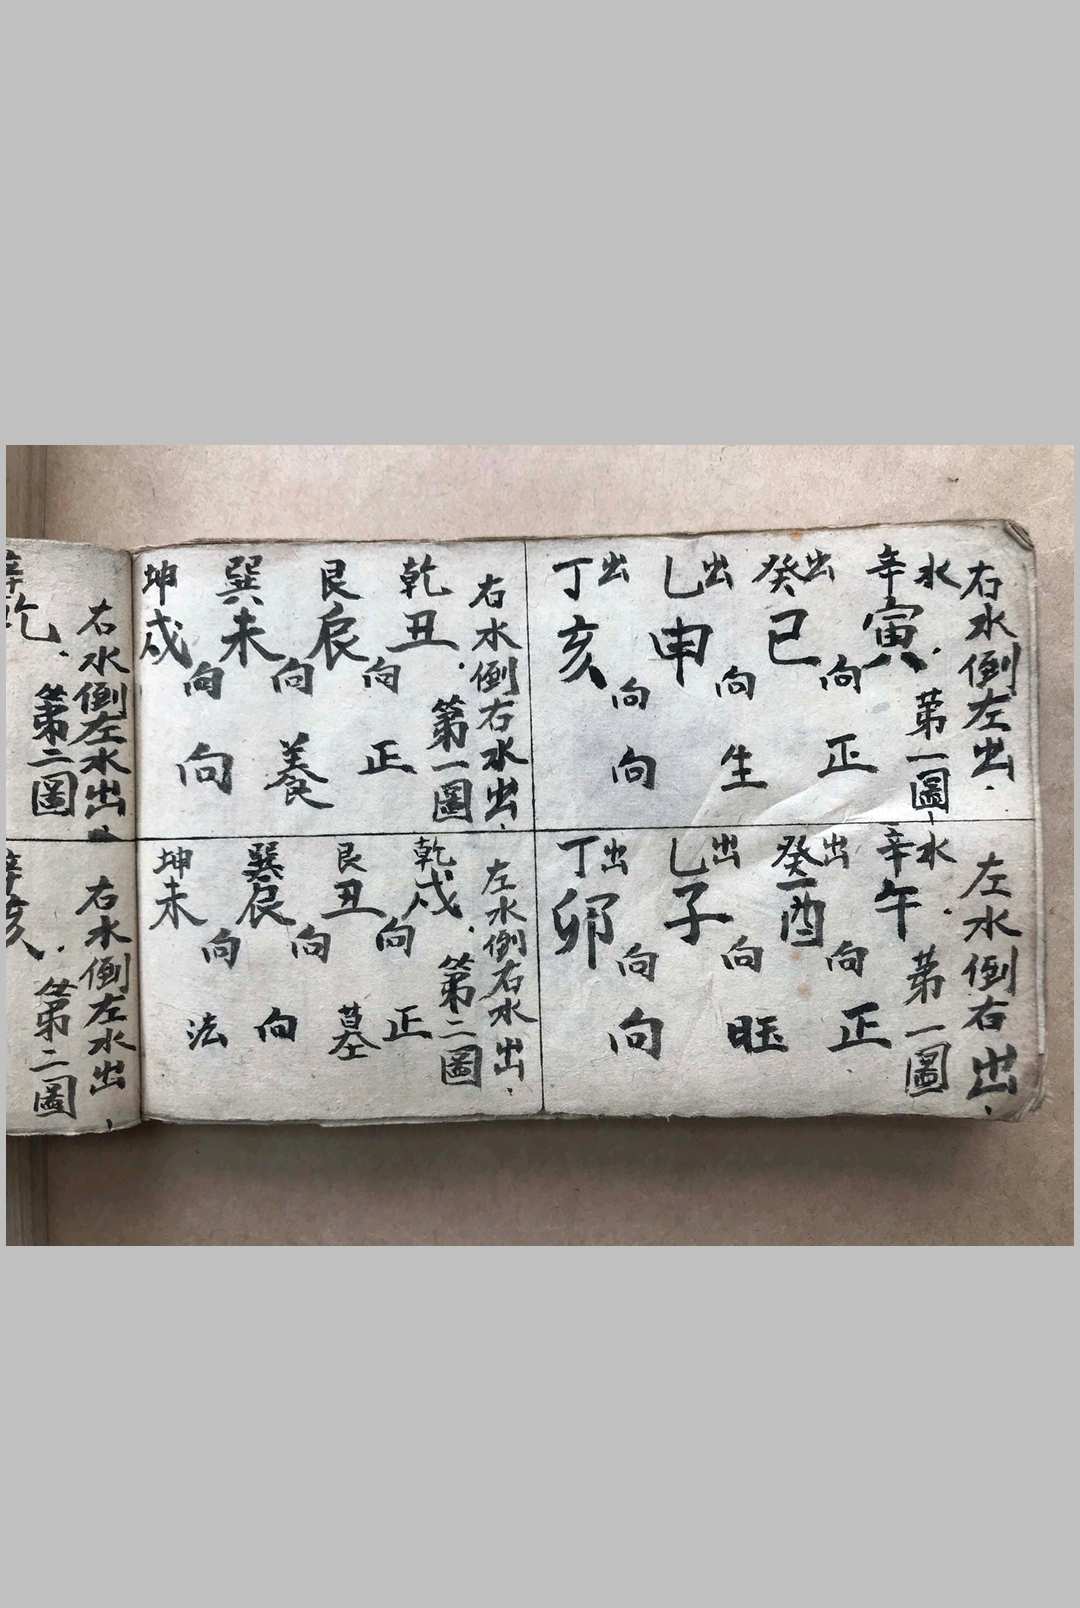 右水倒左出
第一圖
辛水 癸出 乙出 丁出
寅 巳向 申向 亥向
正生向
左水倒右出
第一圖
辛水 癸出 乙出 丁出
午 酉向 子向 卯向
正旺向
右水倒右水出
第一圖
乾 艮 巽 坤
丑 辰向 未向 戌向
正養向
左水倒右水出
第二圖
乾 艮 巽 坤
戌 丑向 辰向 未向
正墓向法
右水倒左水出
第二圖
右水倒左水出
第二圖